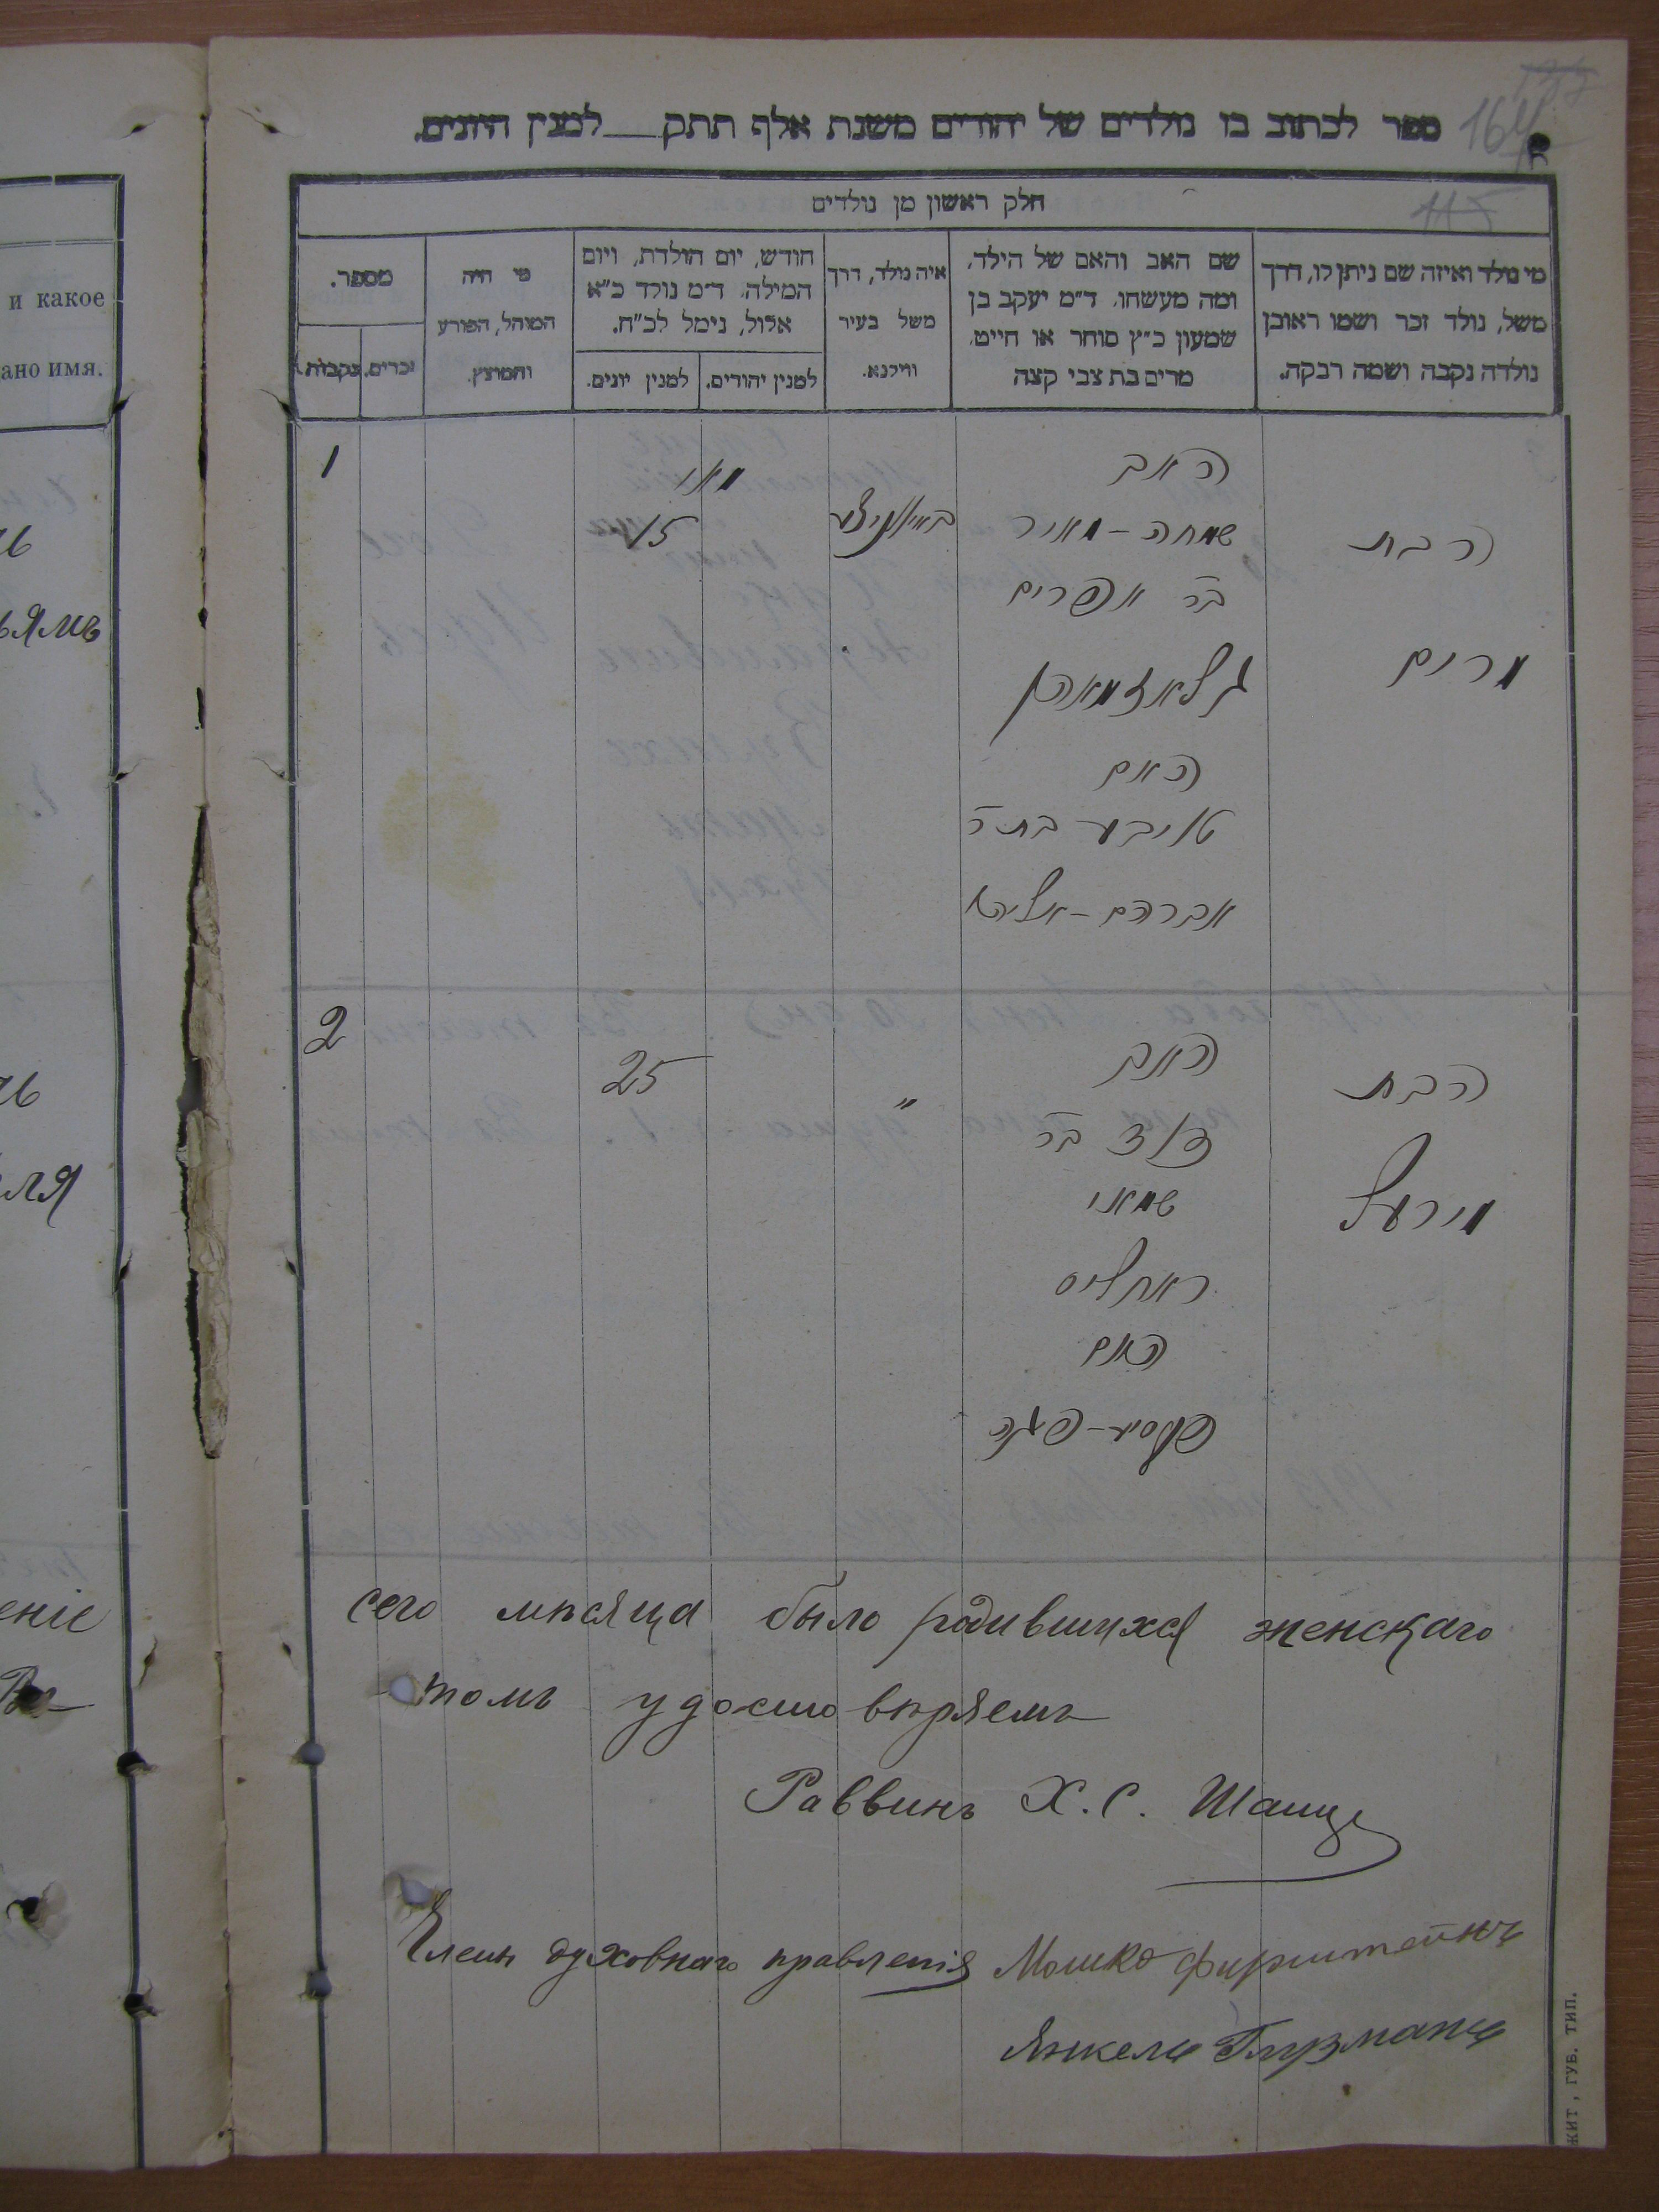 164
115
ספר לכתוב בו נולדים של יהודים משנת אלף תתק___למנין היונים.
חלק ראשון מן נולדים
מי נולד ואיזה שם ניתן לו, דרך
משל, נולד זכר ושמו ראובן
נולדה נקבה ושמה רבקה.
שם האב והאם של הילד,
ומה מעשהו. ד״מ יעקב בן
שמעון כ״ץ סוחר או חייט,
מרים בת צבי קצה
איה נולד, דרך
משל בעיר
ווילנא.
חודש, יום הולדת, ויום
המילה. ד״מ נולד כ״א
אלול, נימל לכ״ח.
למנין יהודים.
למנין יונים.
מי היה
המוהל, הפורע
והמוצץ.
מספר.
זכרים.
נקבות.
הבת
מרים
האב
שמחה-מאיר
בר אפרים
גלאזמאהן
האם
טויבע בת ר
אברהם-אליהו
מאי
15
1
הבת
מירעל
האב
בר
שמאי
האם
פעסיע-פיגה
"
25
2
сего мѣсяца было родившихся женскаго
томъ удостовѣряемъ
Раввинъ Х. С. Шанц
Члены духовнаго правленія Мошко Фирштейнъ
Янкель Глузманъ
и какое
ано имя.
ьямъ
ля
еніе
ЖИТ, ГУБ. ТИП.